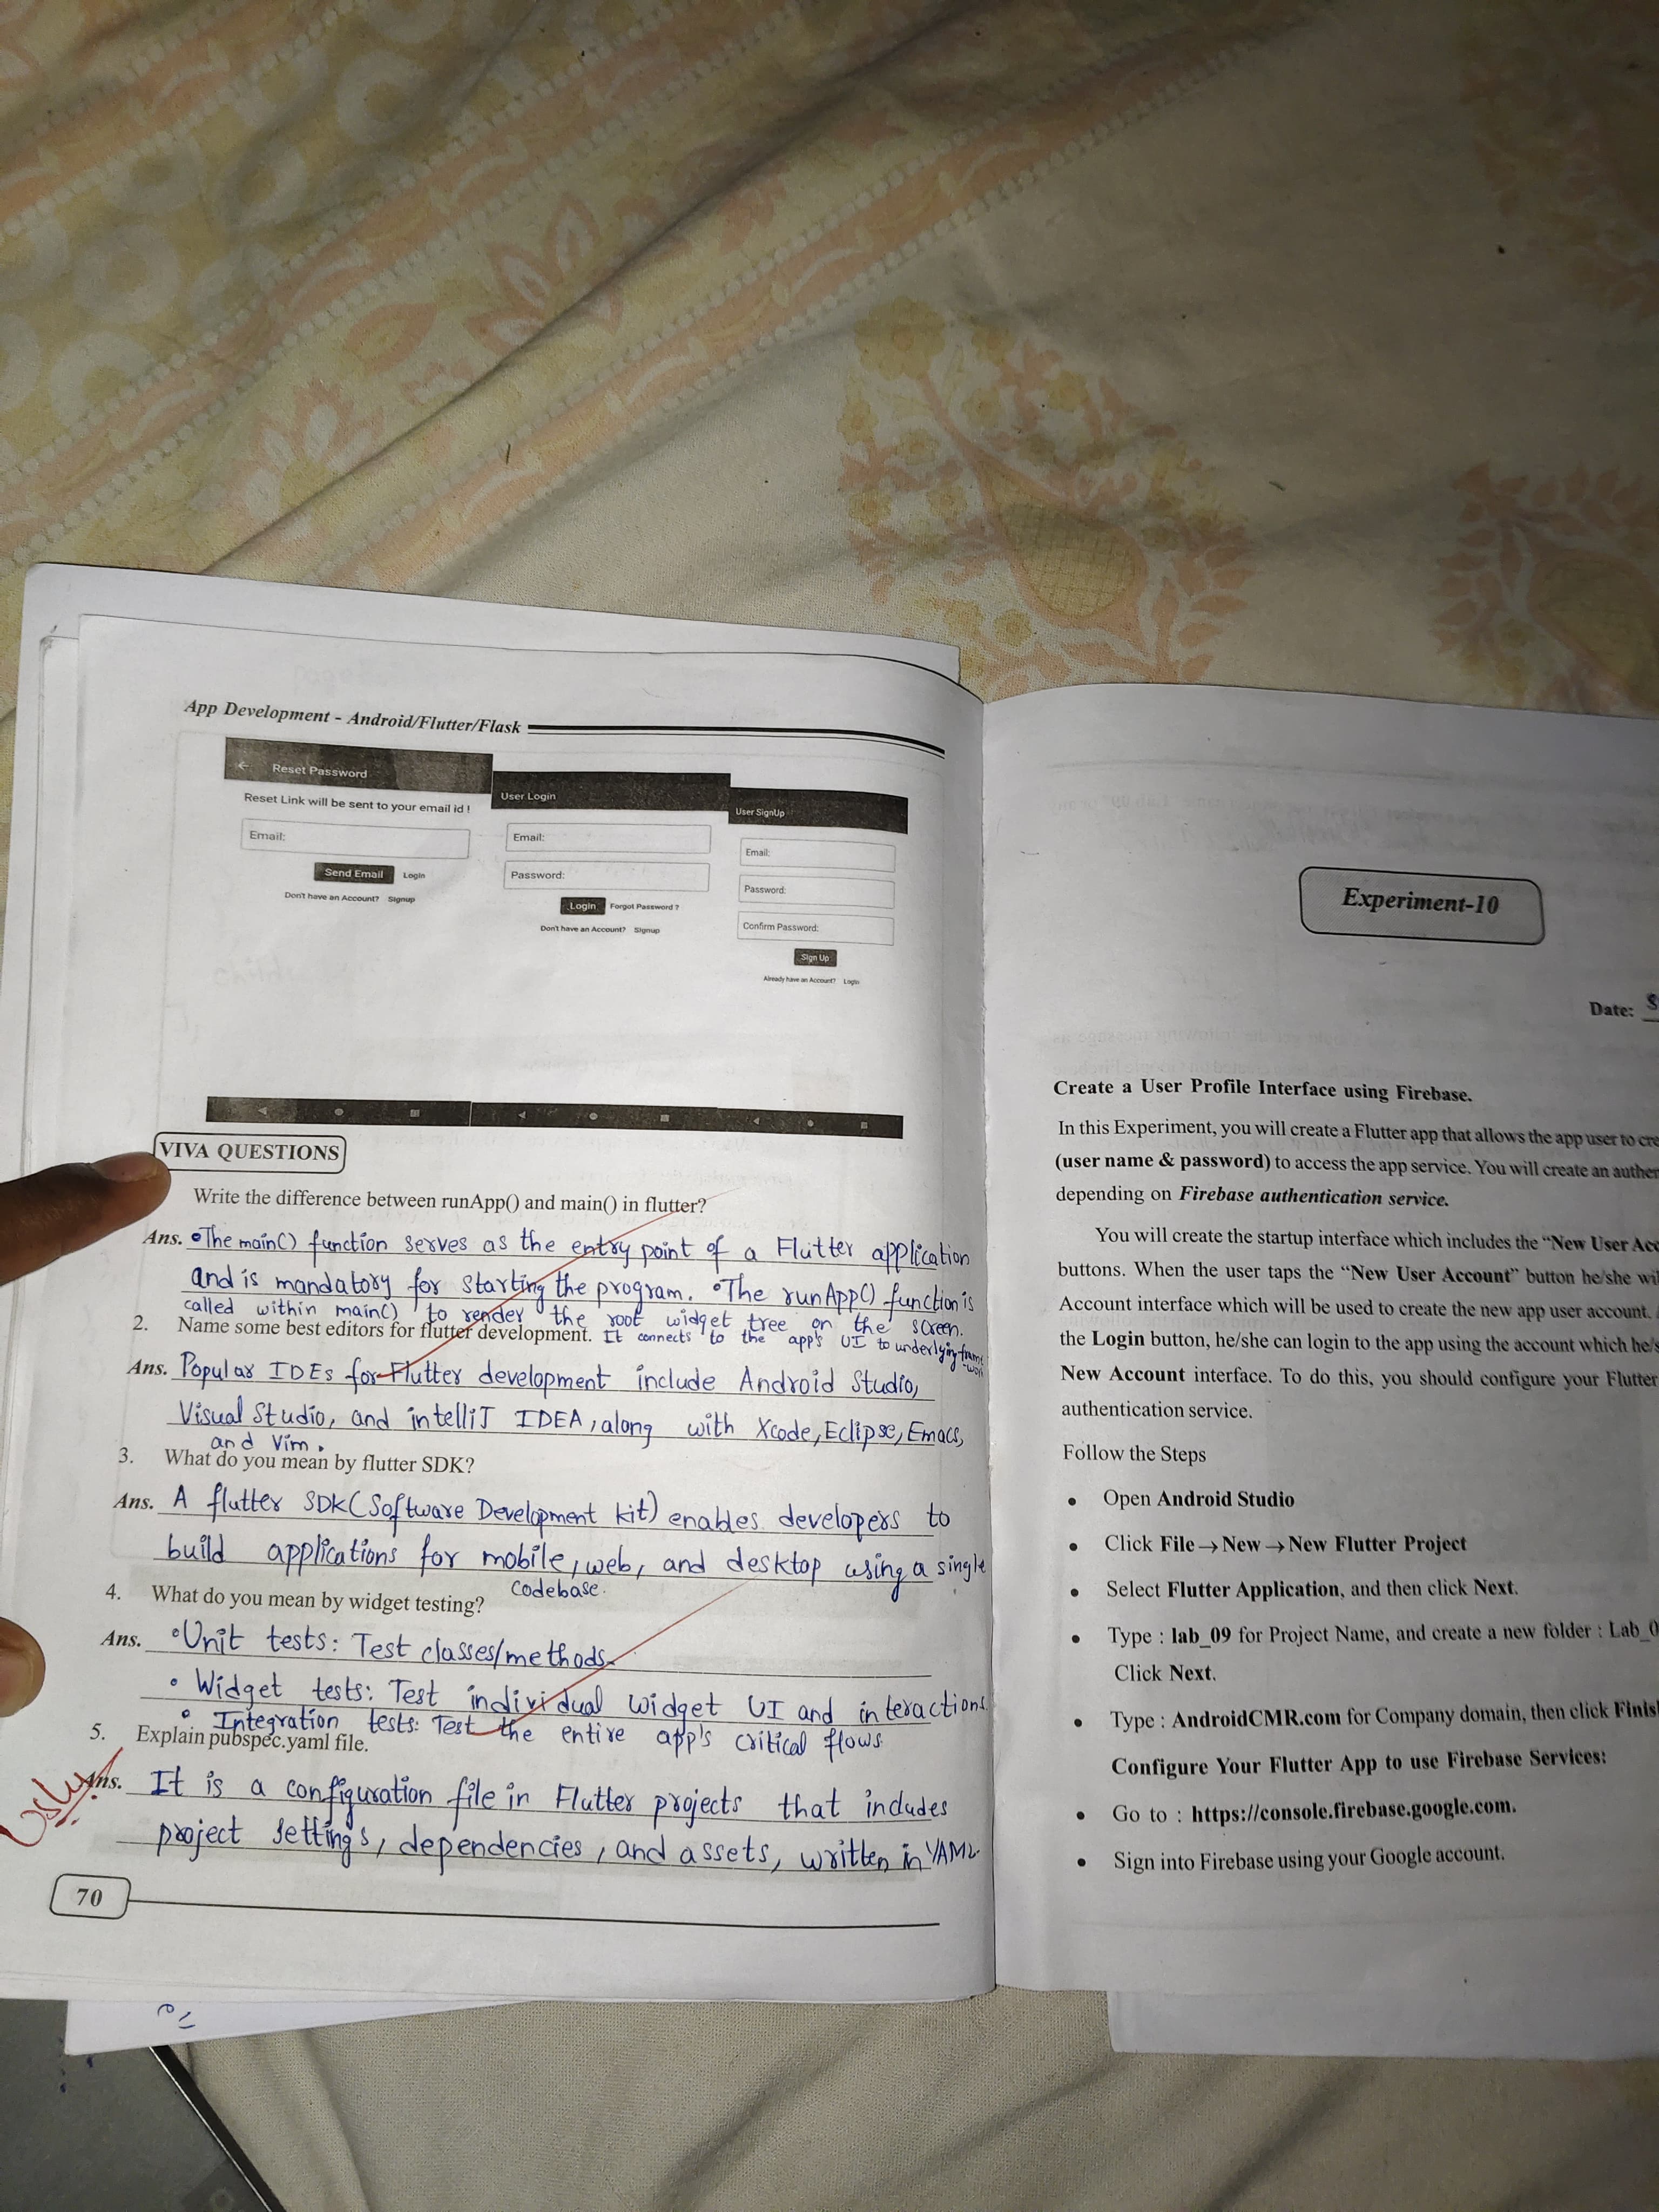 App Development - Android/Flutter/Flask
Reset Password
Reset Link will be sent to your email id !
Email:
Send Email Login
Don't have an Account? Signup
User Login
Email:
Password:
Login Forgot Password ?
Don't have an Account? Signup
User SignUp
Email:
Password:
Confirm Password:
Sign Up
Already have an Account? Login
VIVA QUESTIONS
Write the difference between runApp() and main() in flutter?
Ans. •The main() function serves as the entry point of a Flutter application
and is mandatory for starting the program. •The runApp() function is
called within main() to render the root widget tree on the screen.
It connects to the app's UI to underlying frame
-work
2. Name some best editors for flutter development.
Ans. Popular IDEs for Flutter development include Android Studio,
Visual Studio, and intelliJ IDEA, along with Xcode, Eclipse, Emacs,
and Vim.
3. What do you mean by flutter SDK?
Ans. A flutter SDK (Software Development kit) enables developers to
build applications for mobile, web, and desktop using a single
codebase.
4. What do you mean by widget testing?
Ans. •Unit tests: Test classes/methods.
• Widget tests: Test individual widget UI and interactions
• Integration tests: Test the entire app's critical flows
5. Explain pubspec.yaml file.
Ans. It is a configuration file in Flutter projects that includes
project settings, dependencies, and assets, written in YAML.
70
Experiment-10
Date:
Create a User Profile Interface using Firebase.
In this Experiment, you will create a Flutter app that allows the app user to cre
(user name & password) to access the app service. You will create an authen
depending on Firebase authentication service.
You will create the startup interface which includes the "New User Acc
buttons. When the user taps the "New User Account" button he/she wil
Account interface which will be used to create the new app user account.
the Login button, he/she can login to the app using the account which he/s
New Account interface. To do this, you should configure your Flutter
authentication service.
Follow the Steps
• Open Android Studio
• Click File → New → New Flutter Project
• Select Flutter Application, and then click Next.
• Type : lab_09 for Project Name, and create a new folder : Lab_0
Click Next.
• Type : AndroidCMR.com for Company domain, then click Finis
Configure Your Flutter App to use Firebase Services:
• Go to : https://console.firebase.google.com.
• Sign into Firebase using your Google account.